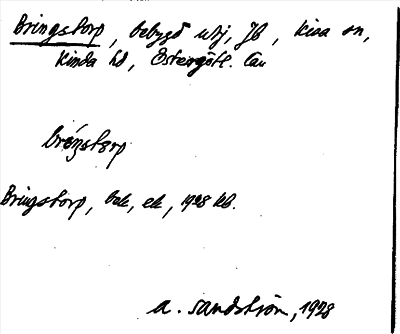 Bringstorp, bebygd utj, JB, Kisa sn,
Kinda hd, Östergötl. län
bréŋstɒrp
Bringstorp, bok, ek, 1928 kb.
A. Sandström, 1928